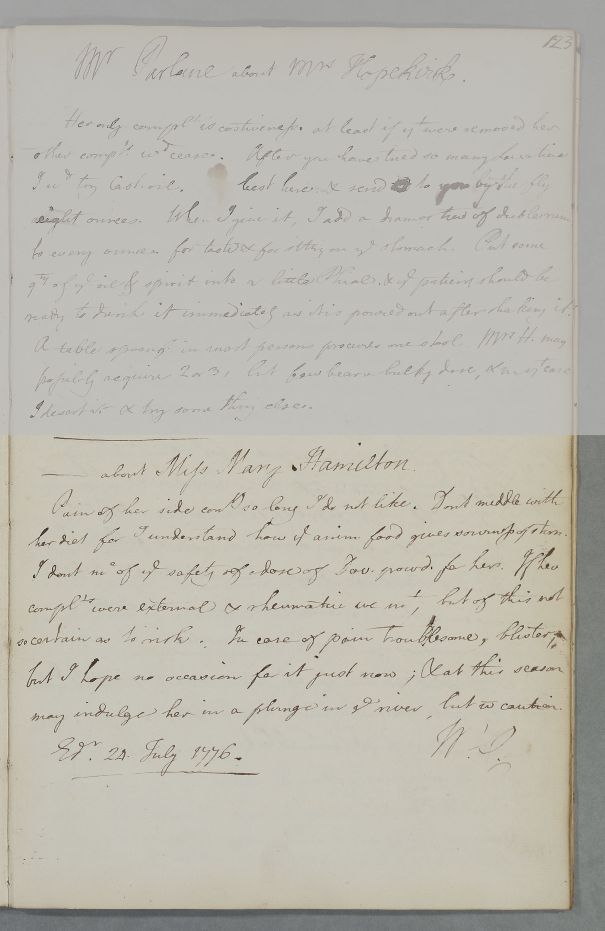 123
Mr Parlane about Mrs Hopekirk.
Her only compl.t is costiveness. at least if yt were removed her
other compts wd cease. After you have tried so many laxatives
I wd try Cast. oil. best here & send to you by the fly
eight ounces. When I give it, I add a dram or two of
to every ounce. for taste & for sitting on ye stomach. Put some
qty of ye oil & spirit into a little Phial. & ye patient should be
ready to drink it immediately as it is poured out after shaking it.
A table spoonf.l in most persons procures one stool. Mrs H. may
possibly require 2 or 3; but few bear a bulky dose, & in yt case
I desert it & try some thing else.
about Miss Mary Hamilton.
Pain of her side cont.d so long I do not like. Dont meddle with
her diet for I understand how ye anim. food gives sourness of stom.
I dont of ye safety of a dose of Dov. powd. for her. If her
compl.ts were external & rheumatic we , but of this not
so certain as to risk. In case of pain troublesome, blister,
but I hope no occasion for it just now; & at this season
may indulge her in a plunge in ye river, but caution.
Edr. 24. July 1776.